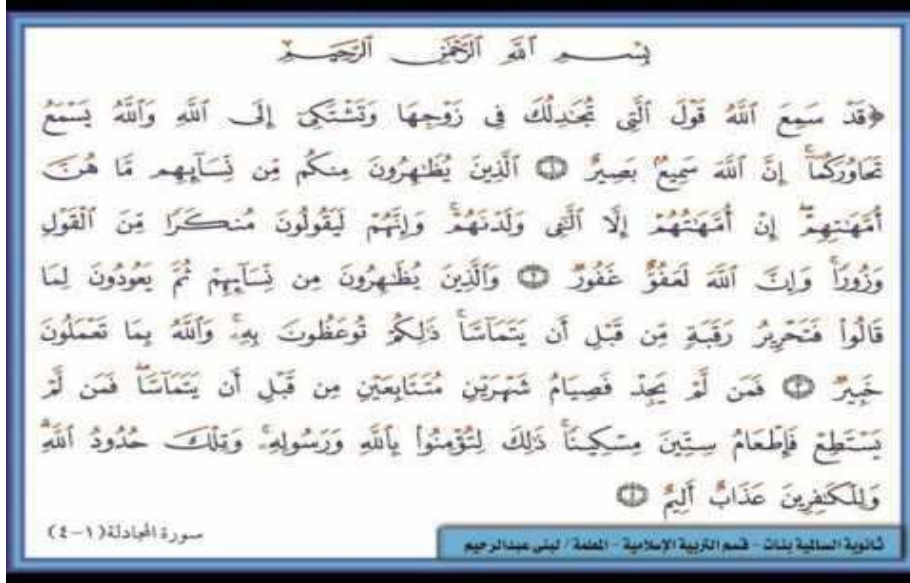 بِسْمِ ٱللَّهِ ٱلرَّحْمَٰنِ ٱلرَّحِيمِ
﴿قَدْ سَمِعَ ٱللَّهُ قَوْلَ ٱلَّتِي تُجَٰدِلُكَ فِي زَوْجِهَا وَتَشْتَكِيٓ إِلَى ٱللَّهِ وَٱللَّهُ يَسْمَعُ
تَحَاوُرَكُمَآ إِنَّ ٱللَّهَ سَمِيعٌۢ بَصِيرٌ ۝١ ٱلَّذِينَ يُظَٰهِرُونَ مِنكُم مِّن نِّسَآئِهِم مَّا هُنَّ
أُمَّهَٰتِهِمْ إِنْ أُمَّهَٰتُهُمْ إِلَّا ٱلَّٰٓـِٔي وَلَدْنَهُمْ وَإِنَّهُمْ لَيَقُولُونَ مُنكَرًا مِّنَ ٱلْقَوْلِ
وَزُورًا وَإِنَّ ٱللَّهَ لَعَفُوٌّ غَفُورٌ ۝٢ وَٱلَّذِينَ يُظَٰهِرُونَ مِن نِّسَآئِهِمْ ثُمَّ يَعُودُونَ لِمَا
قَالُوا۟ فَتَحْرِيرُ رَقَبَةٍ مِّن قَبْلِ أَن يَتَمَآسَّا ذَٰلِكُمْ تُوعَظُونَ بِهِۦ وَٱللَّهُ بِمَا تَعْمَلُونَ
خَبِيرٌ ۝٣ فَمَن لَّمْ يَجِدْ فَصِيَامُ شَهْرَيْنِ مُتَتَابِعَيْنِ مِن قَبْلِ أَن يَتَمَآسَّا فَمَن لَّمْ
يَسْتَطِعْ فَإِطْعَامُ سِتِّينَ مِسْكِينًا ذَٰلِكَ لِتُؤْمِنُوا۟ بِٱللَّهِ وَرَسُولِهِۦ وَتِلْكَ حُدُودُ ٱللَّهِ
وَلِلْكَٰفِرِينَ عَذَابٌ أَلِيمٌ ۝٤
سورة المجادلة(١-٤)
ثانوية السالمية بنات - قسم التربية الإسلامية - المعلمة / لبنى عبدالرحيم